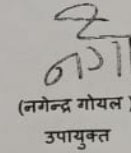 (नगेन्द्र गोयल)
उपायुक्त